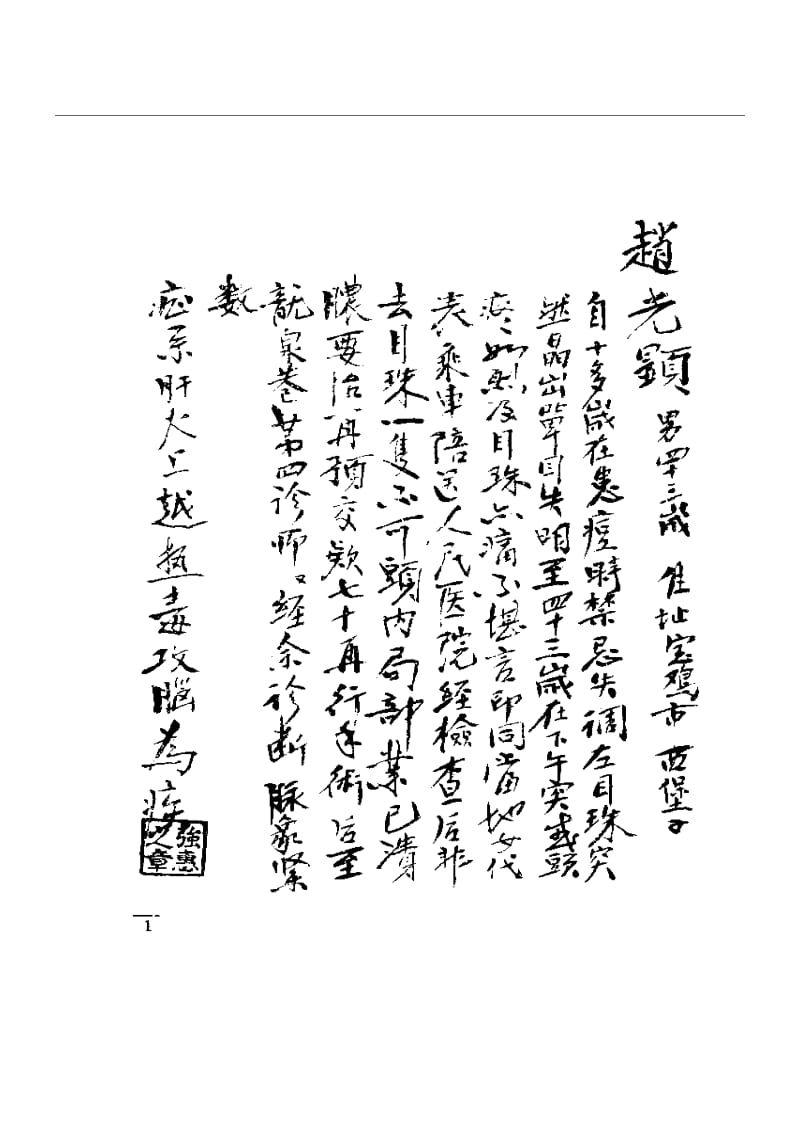 趙光顕 男四十三嵗 住址宝鸡市西堡子
自十多嵗在患痘時禁忌失调左目珠突
然晶出单目失明至四十三嵗在下午突或頭
疼如烈及目珠亦痛不堪言即同当地女代
表乘車陪送人民医院経檢查后非
去目珠一隻不可頭内局部業已潰
膿要治再預交欵七十再行手術后至
龍泉巷第四诊所经余诊断脉象紧
数
症系肝火上越热毒攻腦為疾
強惠之章
1